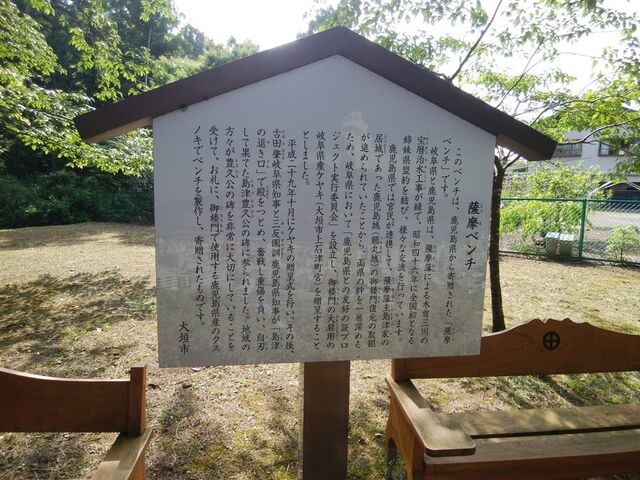 薩摩ベンチ
このベンチは、鹿児島県から寄贈された「薩摩
ベンチ」です。
岐阜県と鹿児島県は、薩摩藩による木曽三川の
宝暦治水工事が縁で、昭和四十六年に全国初となる
姉妹県盟約を結び、様々な交流を行っています。
鹿児島県では官民が連携して、薩摩藩主島津家の
居城であった鹿児島城(鶴丸城)の御楼門復元の取組
が進められていたことから、両県の絆を一層深める
ため、岐阜県において「鹿児島県との友好の証プロ
ジェクト実行委員会」を設立し、御楼門の大扉用の
岐阜県産ケヤキ(大垣市上石津町産)を贈呈すること
としました。
平成二十九年十月にケヤキの贈呈式を行い、その後、
古田肇岐阜県知事と三反園訓鹿児島県知事が「島津
の退き口」で殿をつとめ、奮戦し重傷を負い、自刃
して果てた島津豊久公の碑に参られました。地域の
方々が豊久公の碑を非常に大切にしていることを
受けて、お礼に、御楼門で使用する鹿児島県産のクス
ノキでベンチを製作し、寄贈されたものです。
大垣市